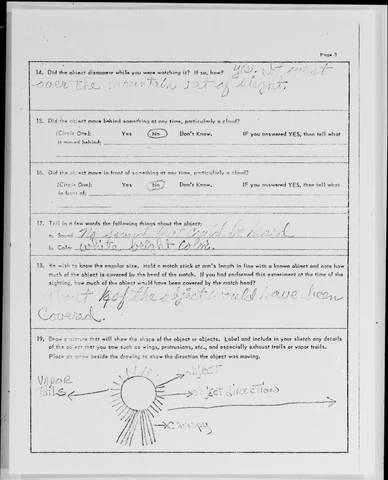 Page 3
14. Did the object disappear while you were watching it? If so, how? yes. it went
over the mountain out of sight.
15. Did the object move behind something at any time, particularly a cloud?
(Circle One): Yes No Don't Know. IF you answered YES, then tell what
it moved behind:
16. Did the object move in front of something at any time, particularly a cloud?
(Circle One): Yes No Don't Know. IF you answered YES, then tell what
in front of:
17. Tell in a few words the following things about the object:
a. Sound No sound that could be heard
b. Color white bright color.
18. We wish to know the angular size. Hold a match stick at arm's length in line with a known object and note how
much of the object is covered by the head of the match. If you had performed this experiment at the time of the
sighting, how much of the object would have been covered by the match head?
about of the object would have been
Covered.
19. Draw a picture that will show the shape of the object or objects. Label and include in your sketch any details
of the object that you saw such as wings, protrusions, etc., and especially exhaust trails or vapor trails.
Place an arrow beside the drawing to show the direction the object was moving.
OBJECT
VAPOR
tails
object direction
CANOPY